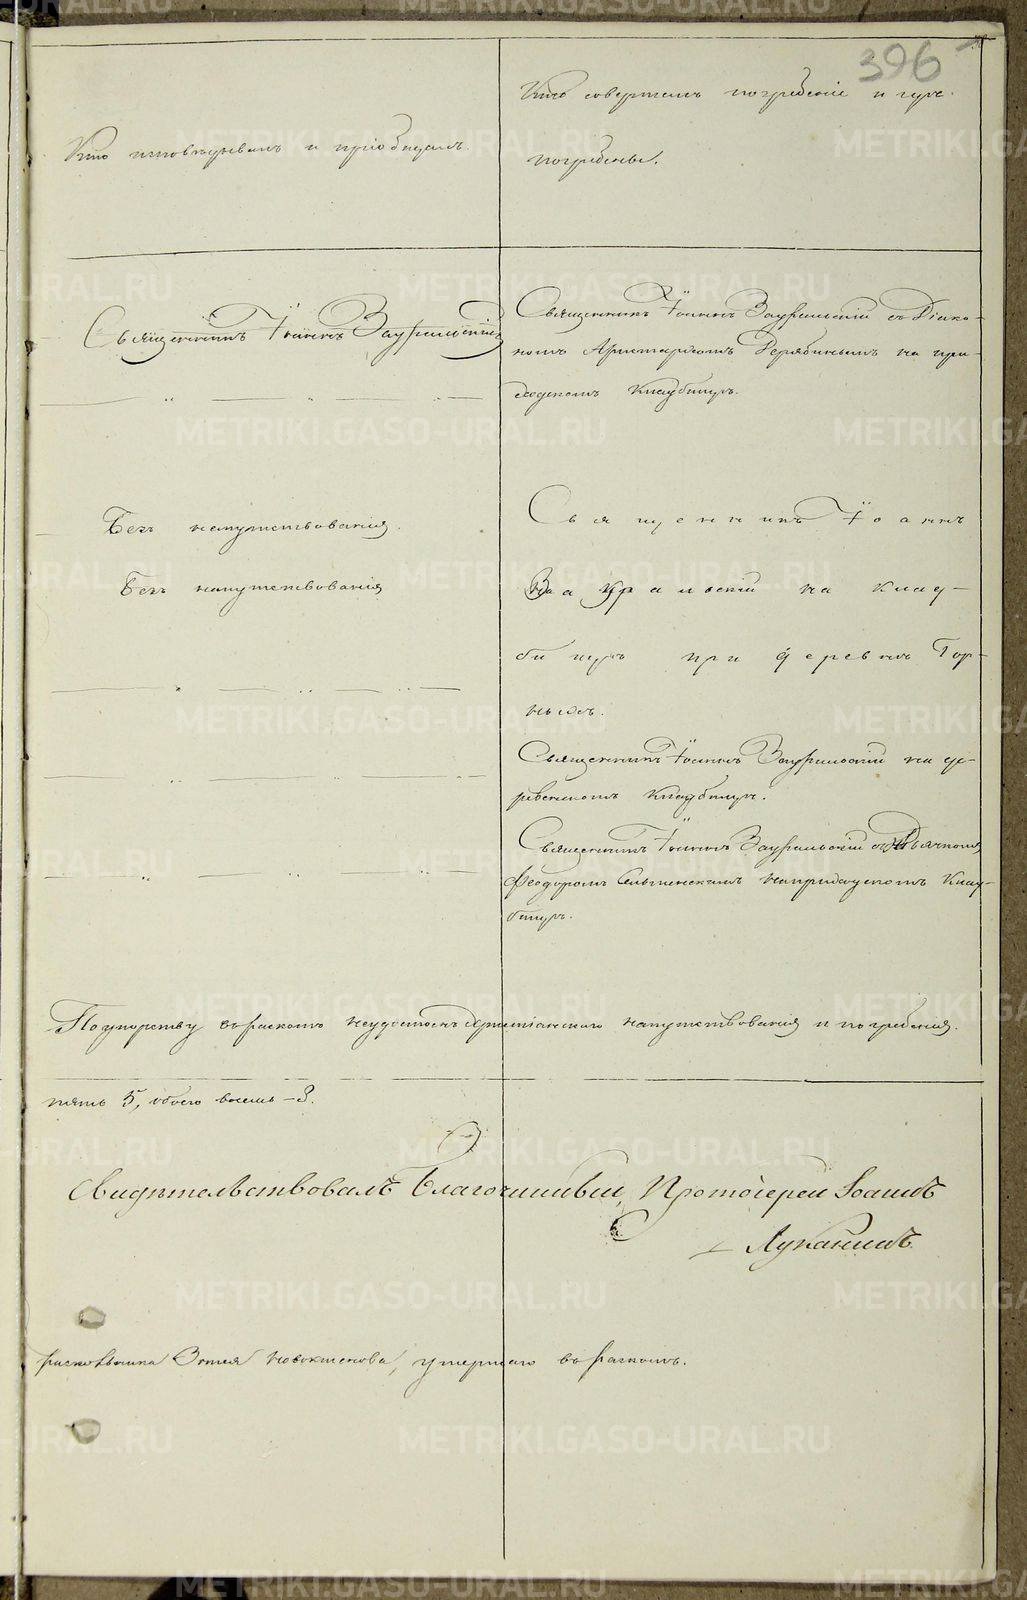 396
Кто исповѣдывалъ и пріобщалъ.
Кто совершалъ погребеніе и гдѣ
погребены.
Священникъ Іоаннъ Зауральскій
Священникъ Іоаннъ Зауральскій съ Діако-
номъ Аристархомъ Дерябинымъ на при-
ходскомъ кладбищѣ.
Безъ напутствованія.
Безъ напутствованія
Священникъ Іоаннъ
Зауральскій на клад-
бищѣ при деревнѣ Гор-
ныхъ.
Священникъ Іоаннъ Зауральскій на де-
ревенскомъ кладбищѣ.
Священникъ Іоаннъ Зауральскій съ Дьячкомъ
Феодоромъ на приходскомъ клад-
бищѣ.
По упорству въ расколѣ неудостоенъ христіанскаго напутствованія и погребенія.
пять 5, обоего восемь – 8.
Свидѣтельствовалъ Благочинный, Протоіерей Іоаннъ
Луканинъ
раскольника Зотея умершаго въ расколѣ.
METRIKI.GASO-URAL.RU